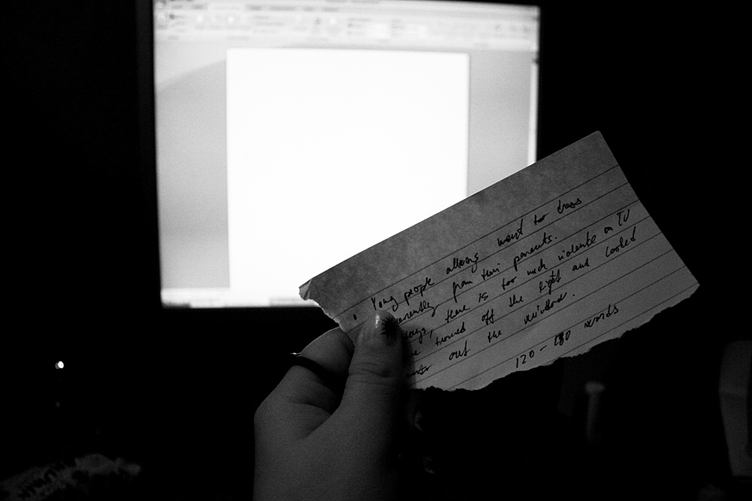 • Young people always want to dress
erently from their parents.
days, there is too much violence on TV
he turned off the light and looked
out the window.
120 - 180 words